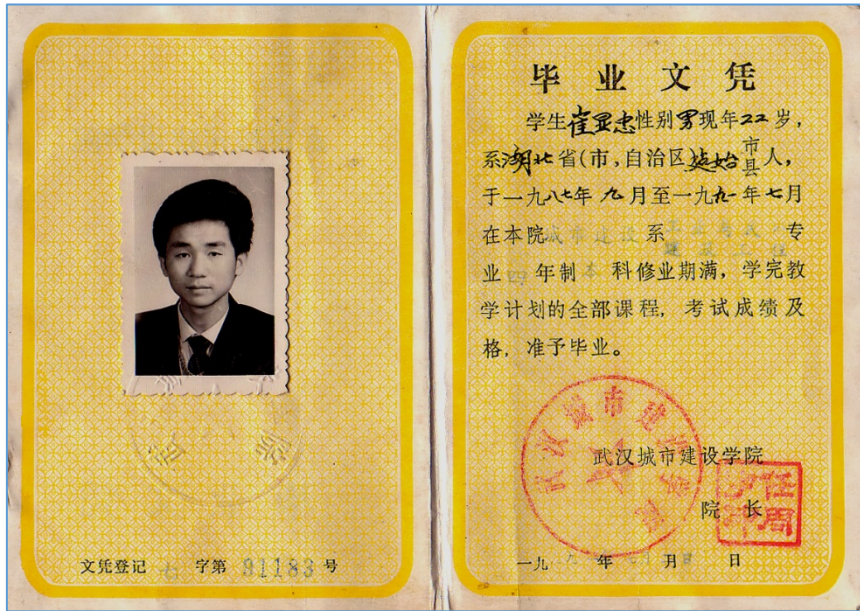 文凭登记 字第 91183 号
毕业文凭
学生崔显忠性别男现年22岁，
系湖北省(市，自治区)建始市县人，
于一九八七年九月至一九九一年七月
在本院城市建设系 专
业四年制本科修业期满，学完教
学计划的全部课程，考试成绩及
格，准予毕业。
武汉城市建设学院
院长
一九九 年七月 日